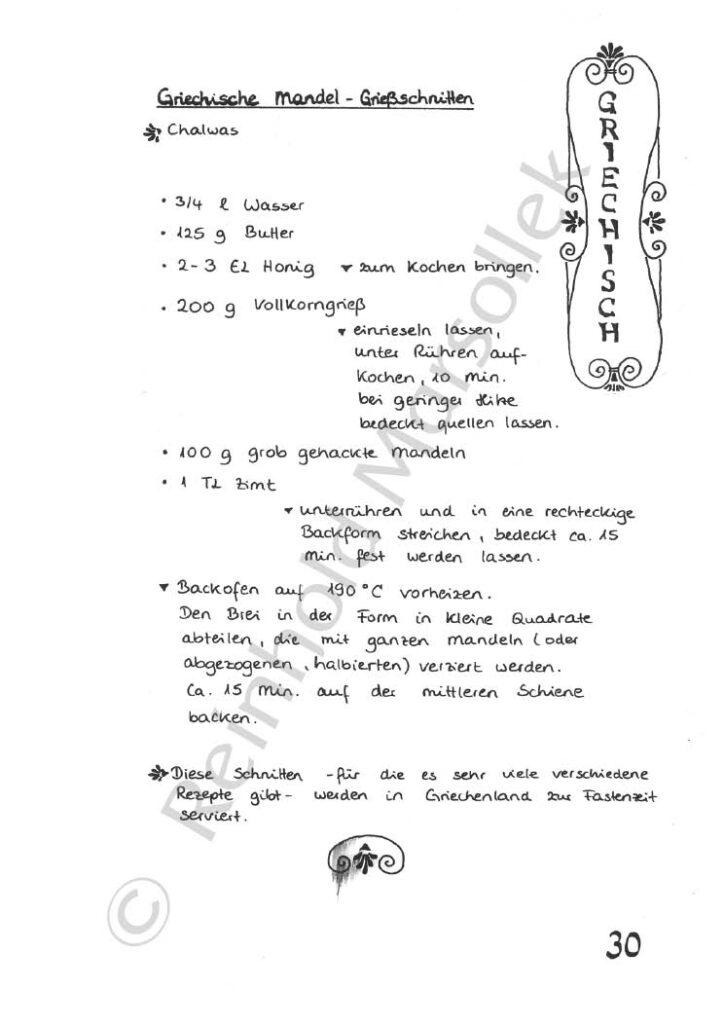 Griechische Mandel - Grießschnitten
Chalwas
GRIECHISCH
• 3/4 l Wasser
• 125 g Butter
• 2-3 EL Honig ▾ zum Kochen bringen.
• 200 g Vollkorngrieß
▾ einrieseln lassen,
unter Rühren auf-
kochen, 10 min.
bei geringer Hitze
bedeckt quellen lassen.
• 100 g grob gehackte Mandeln
• 1 TL Zimt
▾ unterrühren und in eine rechteckige
Backform streichen, bedeckt ca. 15
min. fest werden lassen.
▾ Backofen auf 190 °C vorheizen.
Den Brei in der Form in kleine Quadrate
abteilen, die mit ganzen Mandeln (oder
abgezogenen, halbierten) verziert werden.
Ca. 15 Min. auf der mittleren Schiene
backen.
Diese Schnitten - für die es sehr viele verschiedene
Rezepte gibt - werden in Griechenland zur Fastenzeit
serviert.
30
© Reinhold Marsollek